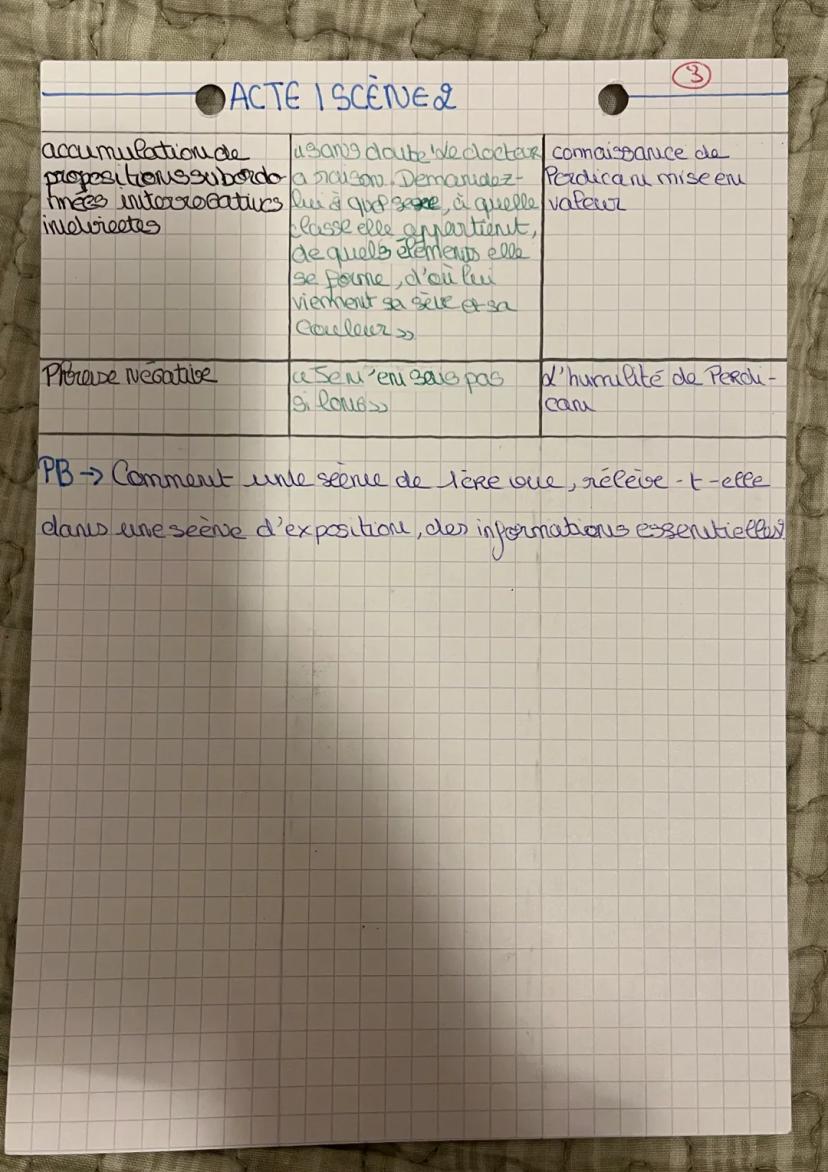 3
ACTE 1 SCÈNE 2
accumulation de
propositions subordo-
nnées interrogatives
indirectes
« sans doute le docteur
a raison. Demandez-
lui à quel sexe, à quelle
classe elle appartient,
de quels éléments elle
se forme, d'où lui
viennent sa sève et sa
couleur »
connaissance de
Perdican mise en
valeur
Phrase Négative
« Je n'en sais pas
si long »
d'humilité de Perdi-
can
PB → Comment une scène de 1ère vue, rélève-t-elle
dans une scène d'exposition, des informations essentielles?